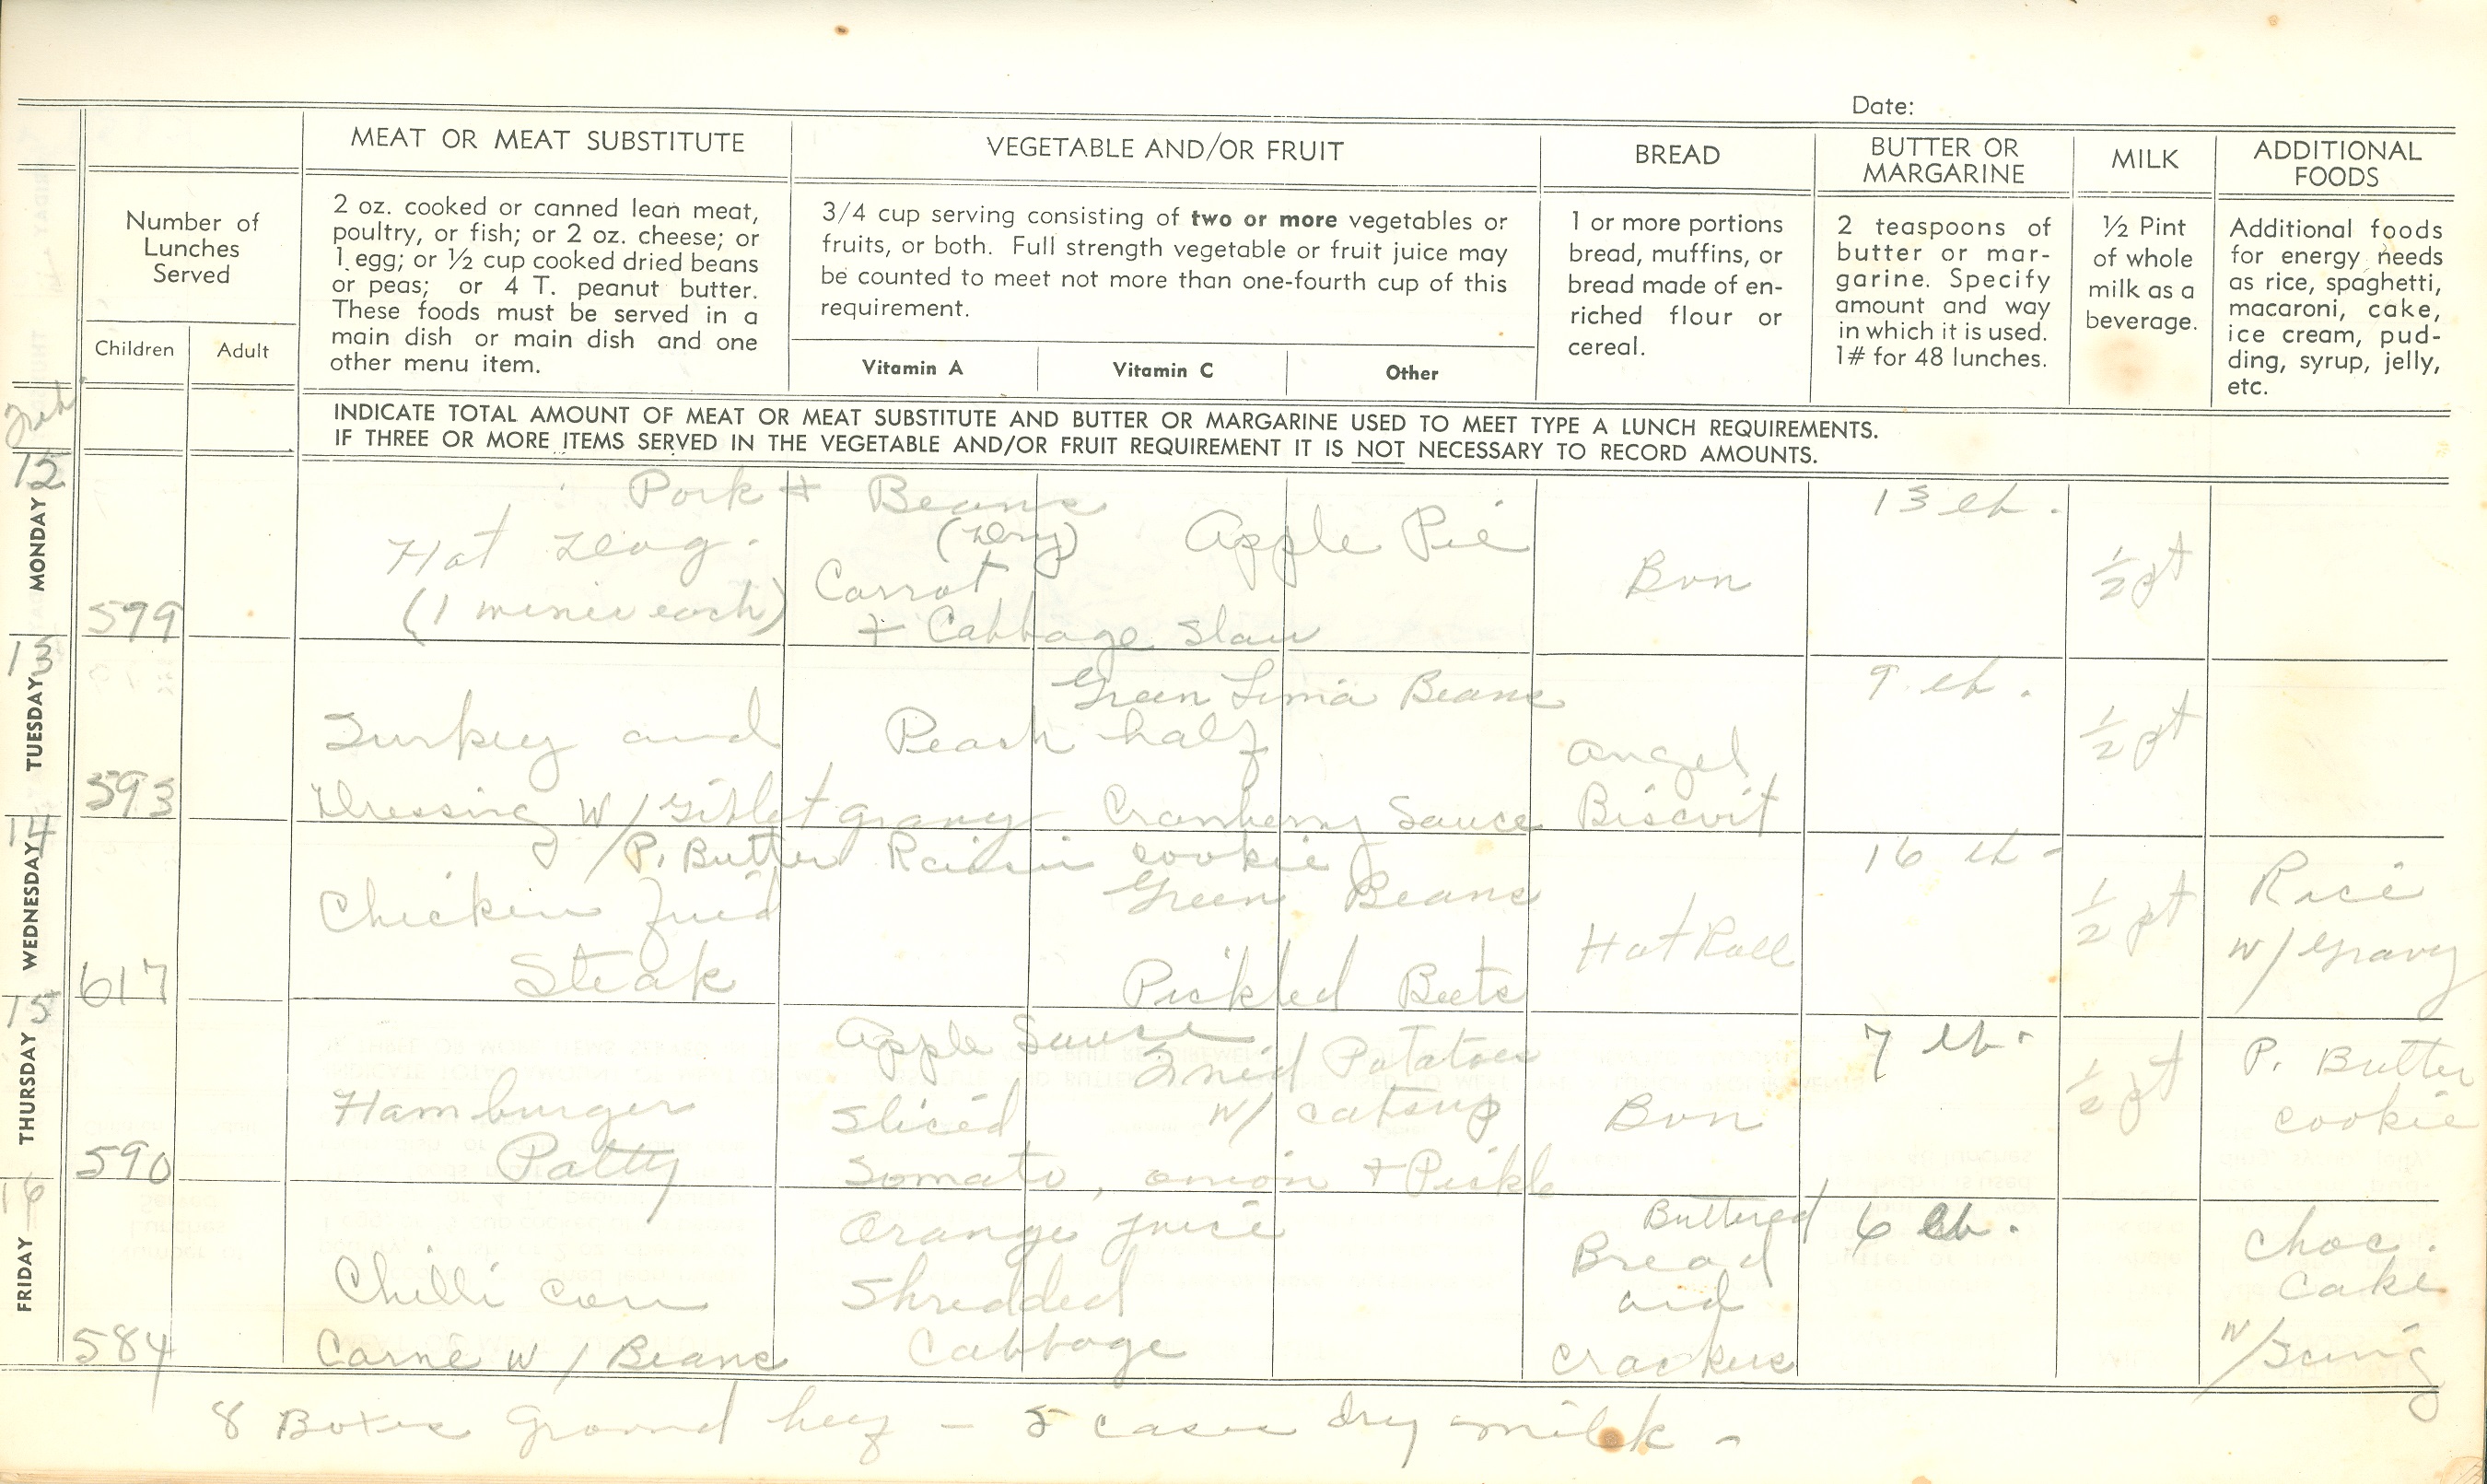 Date:
MEAT OR MEAT SUBSTITUTE
VEGETABLE AND/OR FRUIT
BREAD
BUTTER OR
MARGARINE
MILK
ADDITIONAL
FOODS
Number of
Lunches
Served
Children
Adult
2 oz. cooked or canned lean meat,
poultry, or fish; or 2 oz. cheese; or
1 egg; or ½ cup cooked dried beans
or peas; or 4 T. peanut butter.
These foods must be served in a
main dish or main dish and one
other menu item.
3/4 cup serving consisting of two or more vegetables or
fruits, or both. Full strength vegetable or fruit juice may
be counted to meet not more than one-fourth cup of this
requirement.
Vitamin A
Vitamin C
Other
1 or more portions
bread, muffins, or
bread made of en-
riched flour or
cereal.
2 teaspoons of
butter or mar-
garine. Specify
amount and way
in which it is used.
1# for 48 lunches.
½ Pint
of whole
milk as a
beverage.
Additional foods
for energy needs
as rice, spaghetti,
macaroni, cake,
ice cream, pud-
ding, syrup, jelly,
etc.
INDICATE TOTAL AMOUNT OF MEAT OR MEAT SUBSTITUTE AND BUTTER OR MARGARINE USED TO MEET TYPE A LUNCH REQUIREMENTS.
IF THREE OR MORE ITEMS SERVED IN THE VEGETABLE AND/OR FRUIT REQUIREMENT IT IS NOT NECESSARY TO RECORD AMOUNTS.
Feb
12
MONDAY
599
Pork + Beans
(Dry)
Hot Dog.
(1 each)
Carrot
+ Cabbage Slaw
Apple Pie
Bun
13 lb.
½ pt
13
TUESDAY
593
Turkey and
Dressing w/ Giblet gravy
Green Lima Beans
Peach half
Cranberry Sauce
Angel
Biscuit
9 lb.
½ pt
14
WEDNESDAY
617
P. Butter Raisin cookie
Chicken fried
Steak
Green Beans
Pickled Beets
Hot Roll
16 lb-
½ pt
Rice
w/ Gravy
15
THURSDAY
590
Hamburger
Patty
Apple Sauce
Fried Potatoes
w/ catsup
Sliced
Tomato, onion + Pickle
Bun
7 lb.
½ pt
P. Butter
cookie
16
FRIDAY
584
Chilli con
Carne w/ Beans
Orange juice
Shredded
Cabbage
Buttered
Bread
and
crackers
6 lb.
Choc.
Cake
w/ Icing
8 Boxes Ground beef - 5 cases dry milk -